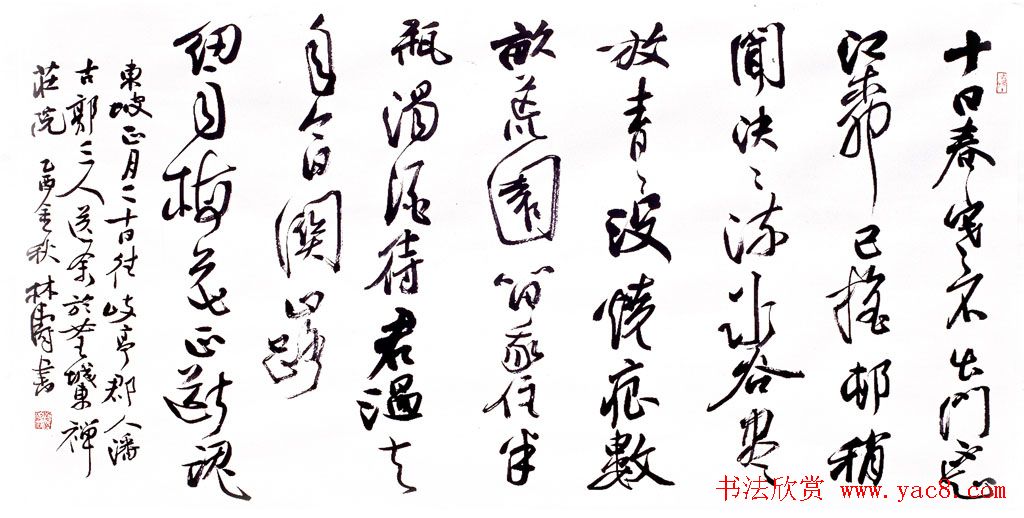 十日春寒不出門不知
江柳已搖邨稍
聞決々流冰谷盡
放青々沒燒痕數
畝荒園留我住半
瓶濁酒待君溫去
年今日關山路
細雨梅花正斷魂
東坡正月二十日往岐亭郡人潘
古郭三人送余於女王城東禪
莊院 乙酉金秋 林濤書
书法欣赏 www.yac8.com